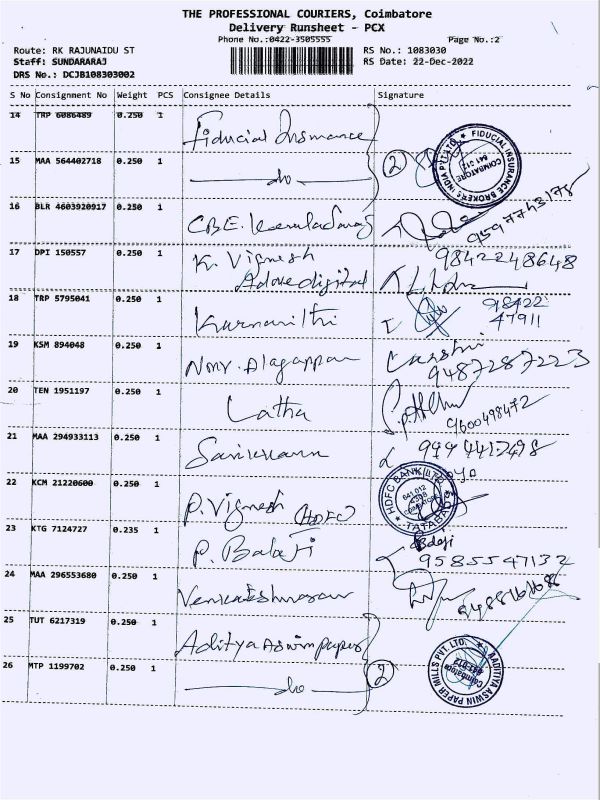 THE PROFESSIONAL COURIERS, Coimbatore
Delivery Runsheet - PCX
Phone No.:0422-3505555 Page No.:2
Route: RK RAJUNAIDU ST RS No.: 1083030
Staff: SUNDARARAJ RS Date: 22-Dec-2022
DRS No.: DCJB108303002
S No Consignment No Weight PCS Consignee Details Signature
14 TRP 6086489 0.250 1 Fiducial Insurance
15 MAA 564402718 0.250 1 do (2)
FIDUCIAL INSURANCE BROKERS INDIA PVT LTD. COIMBATORE 641 012
16 BLR 4603920917 0.250 1 CBE.
9597743178
17 DPI 150557 0.250 1 K. Vignesh 9842248648
Adove digital
18 TRP 5795041 0.250 1 98422
47911
19 KSM 894048 0.250 1 Alagappan
9487287223
20 TEN 1951197 0.250 1 Latha 9600498472
21 MAA 294933113 0.250 1
22 KCM 21220600 0.250 1 P. Vignesh HDFC
HDFC BANK LTD 641 012 TATABAD
23 KTG 7124727 0.235 1 P. Balaji Balaji
9585547132
24 MAA 296553680 0.250 1
25 TUT 6217319 0.250 1 Aditya Aswin paper
26 MTP 1199702 0.250 1 do (2)
AADITIYA ASWIN PAPER MILLS PVT. LTD. Coimbatore 641 012